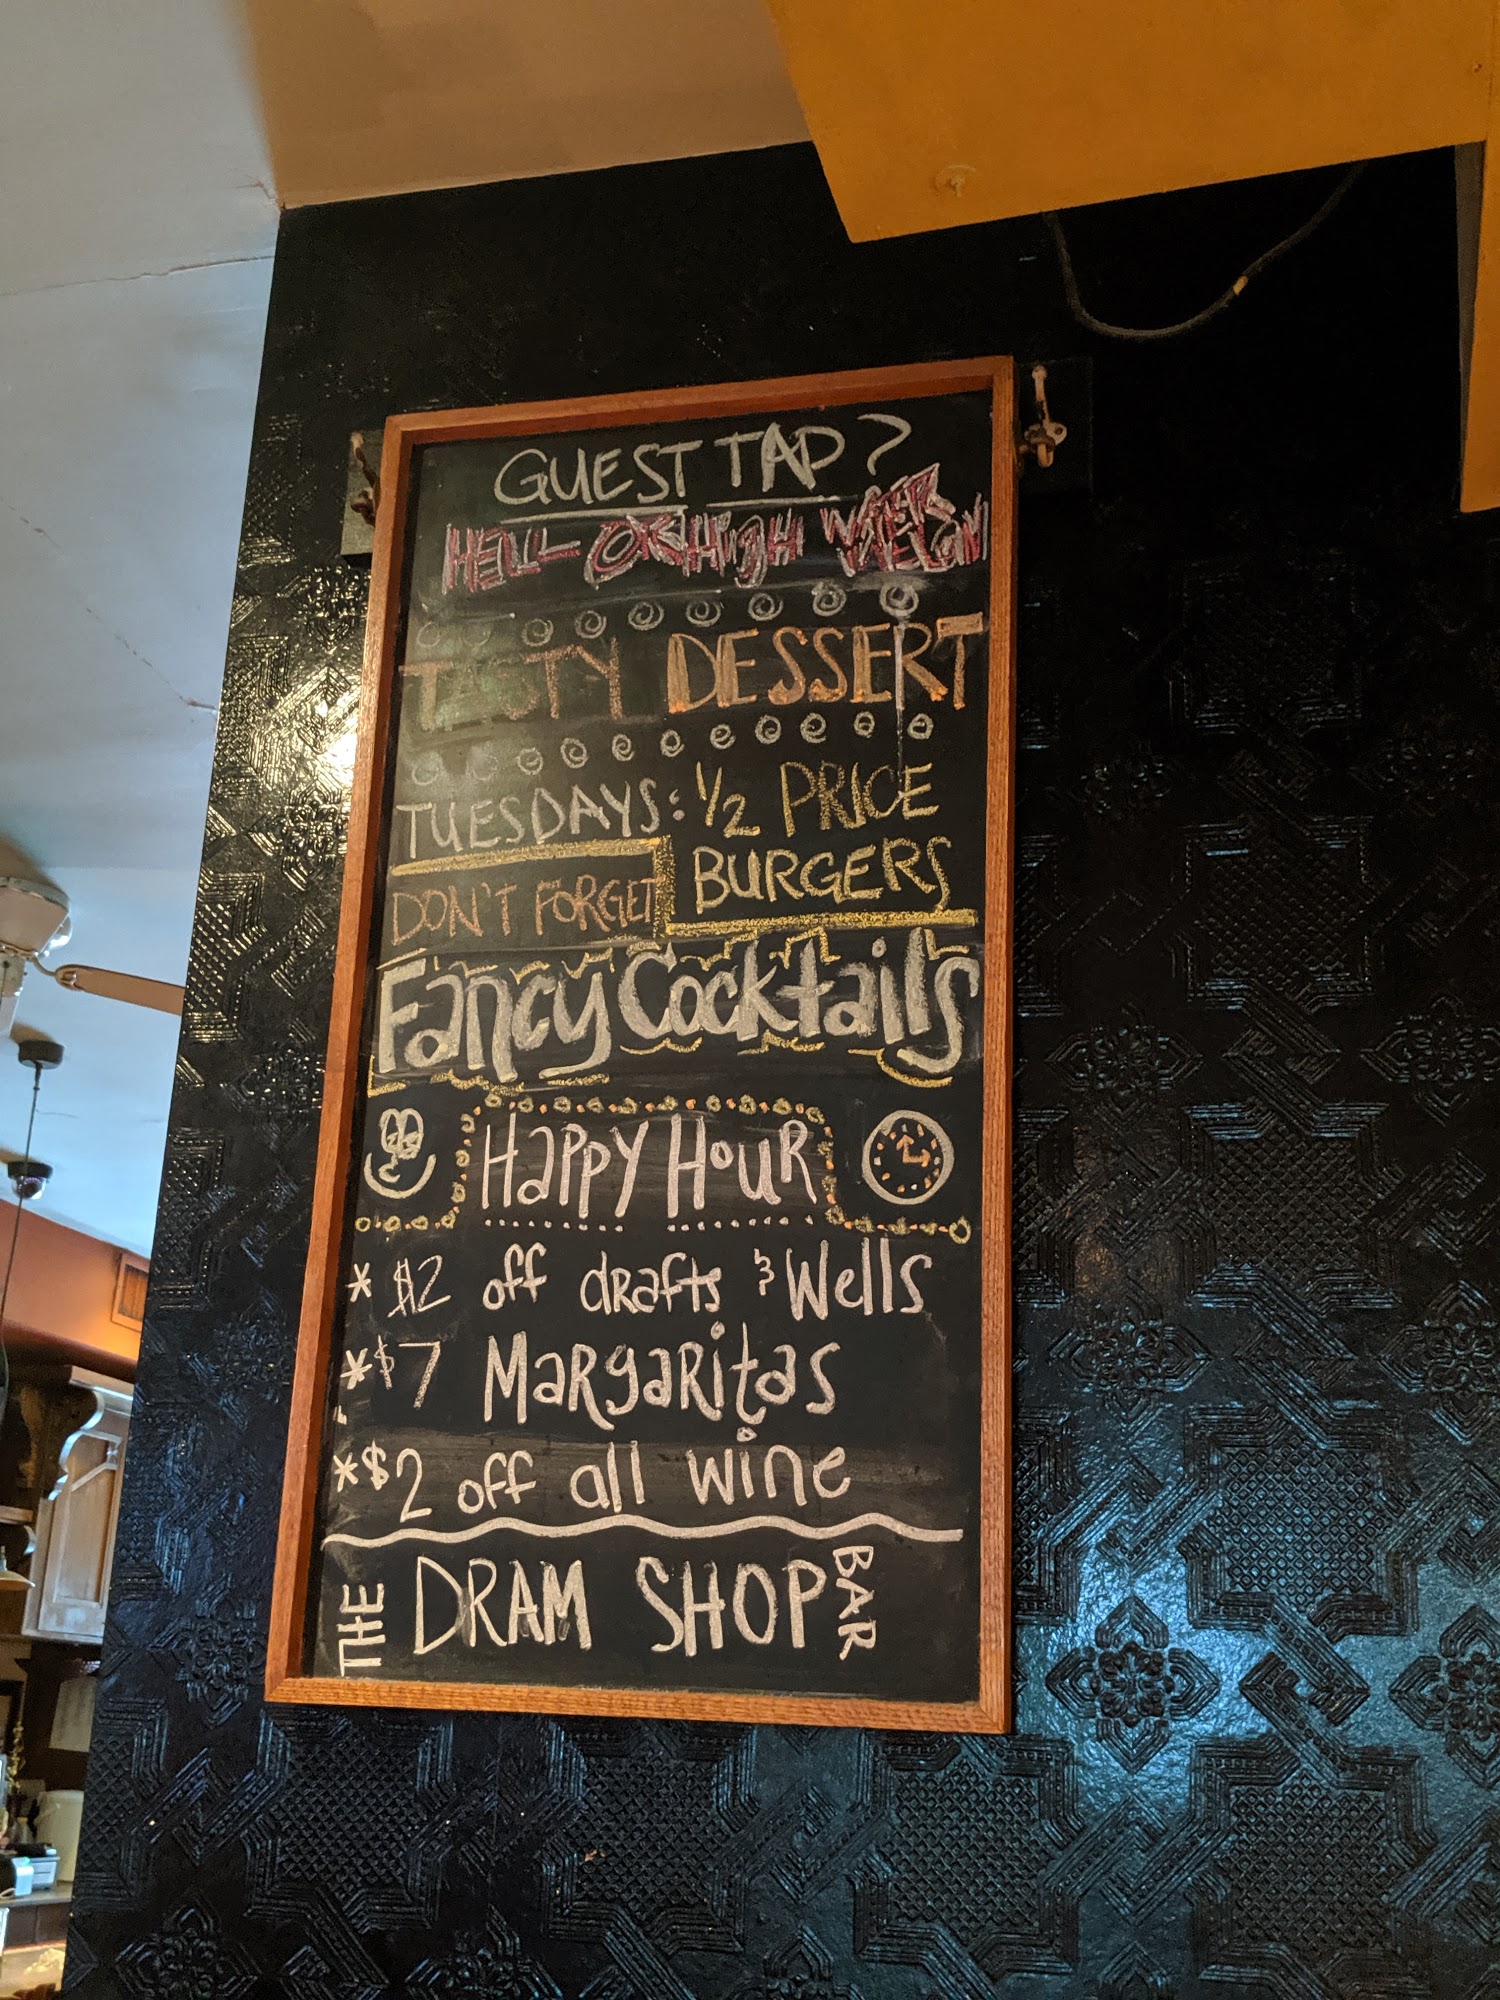 GUEST TAP?
HELL OR High WATER
TASTY DESSERT
TUESDAYS: 1/2 PRICE
BURGERS
DON'T FORGET
Fancy Cocktails
Happy Hour
* $2 off drafts & Wells
* $7 Margaritas
* $2 off all wine
THE DRAM SHOP BAR